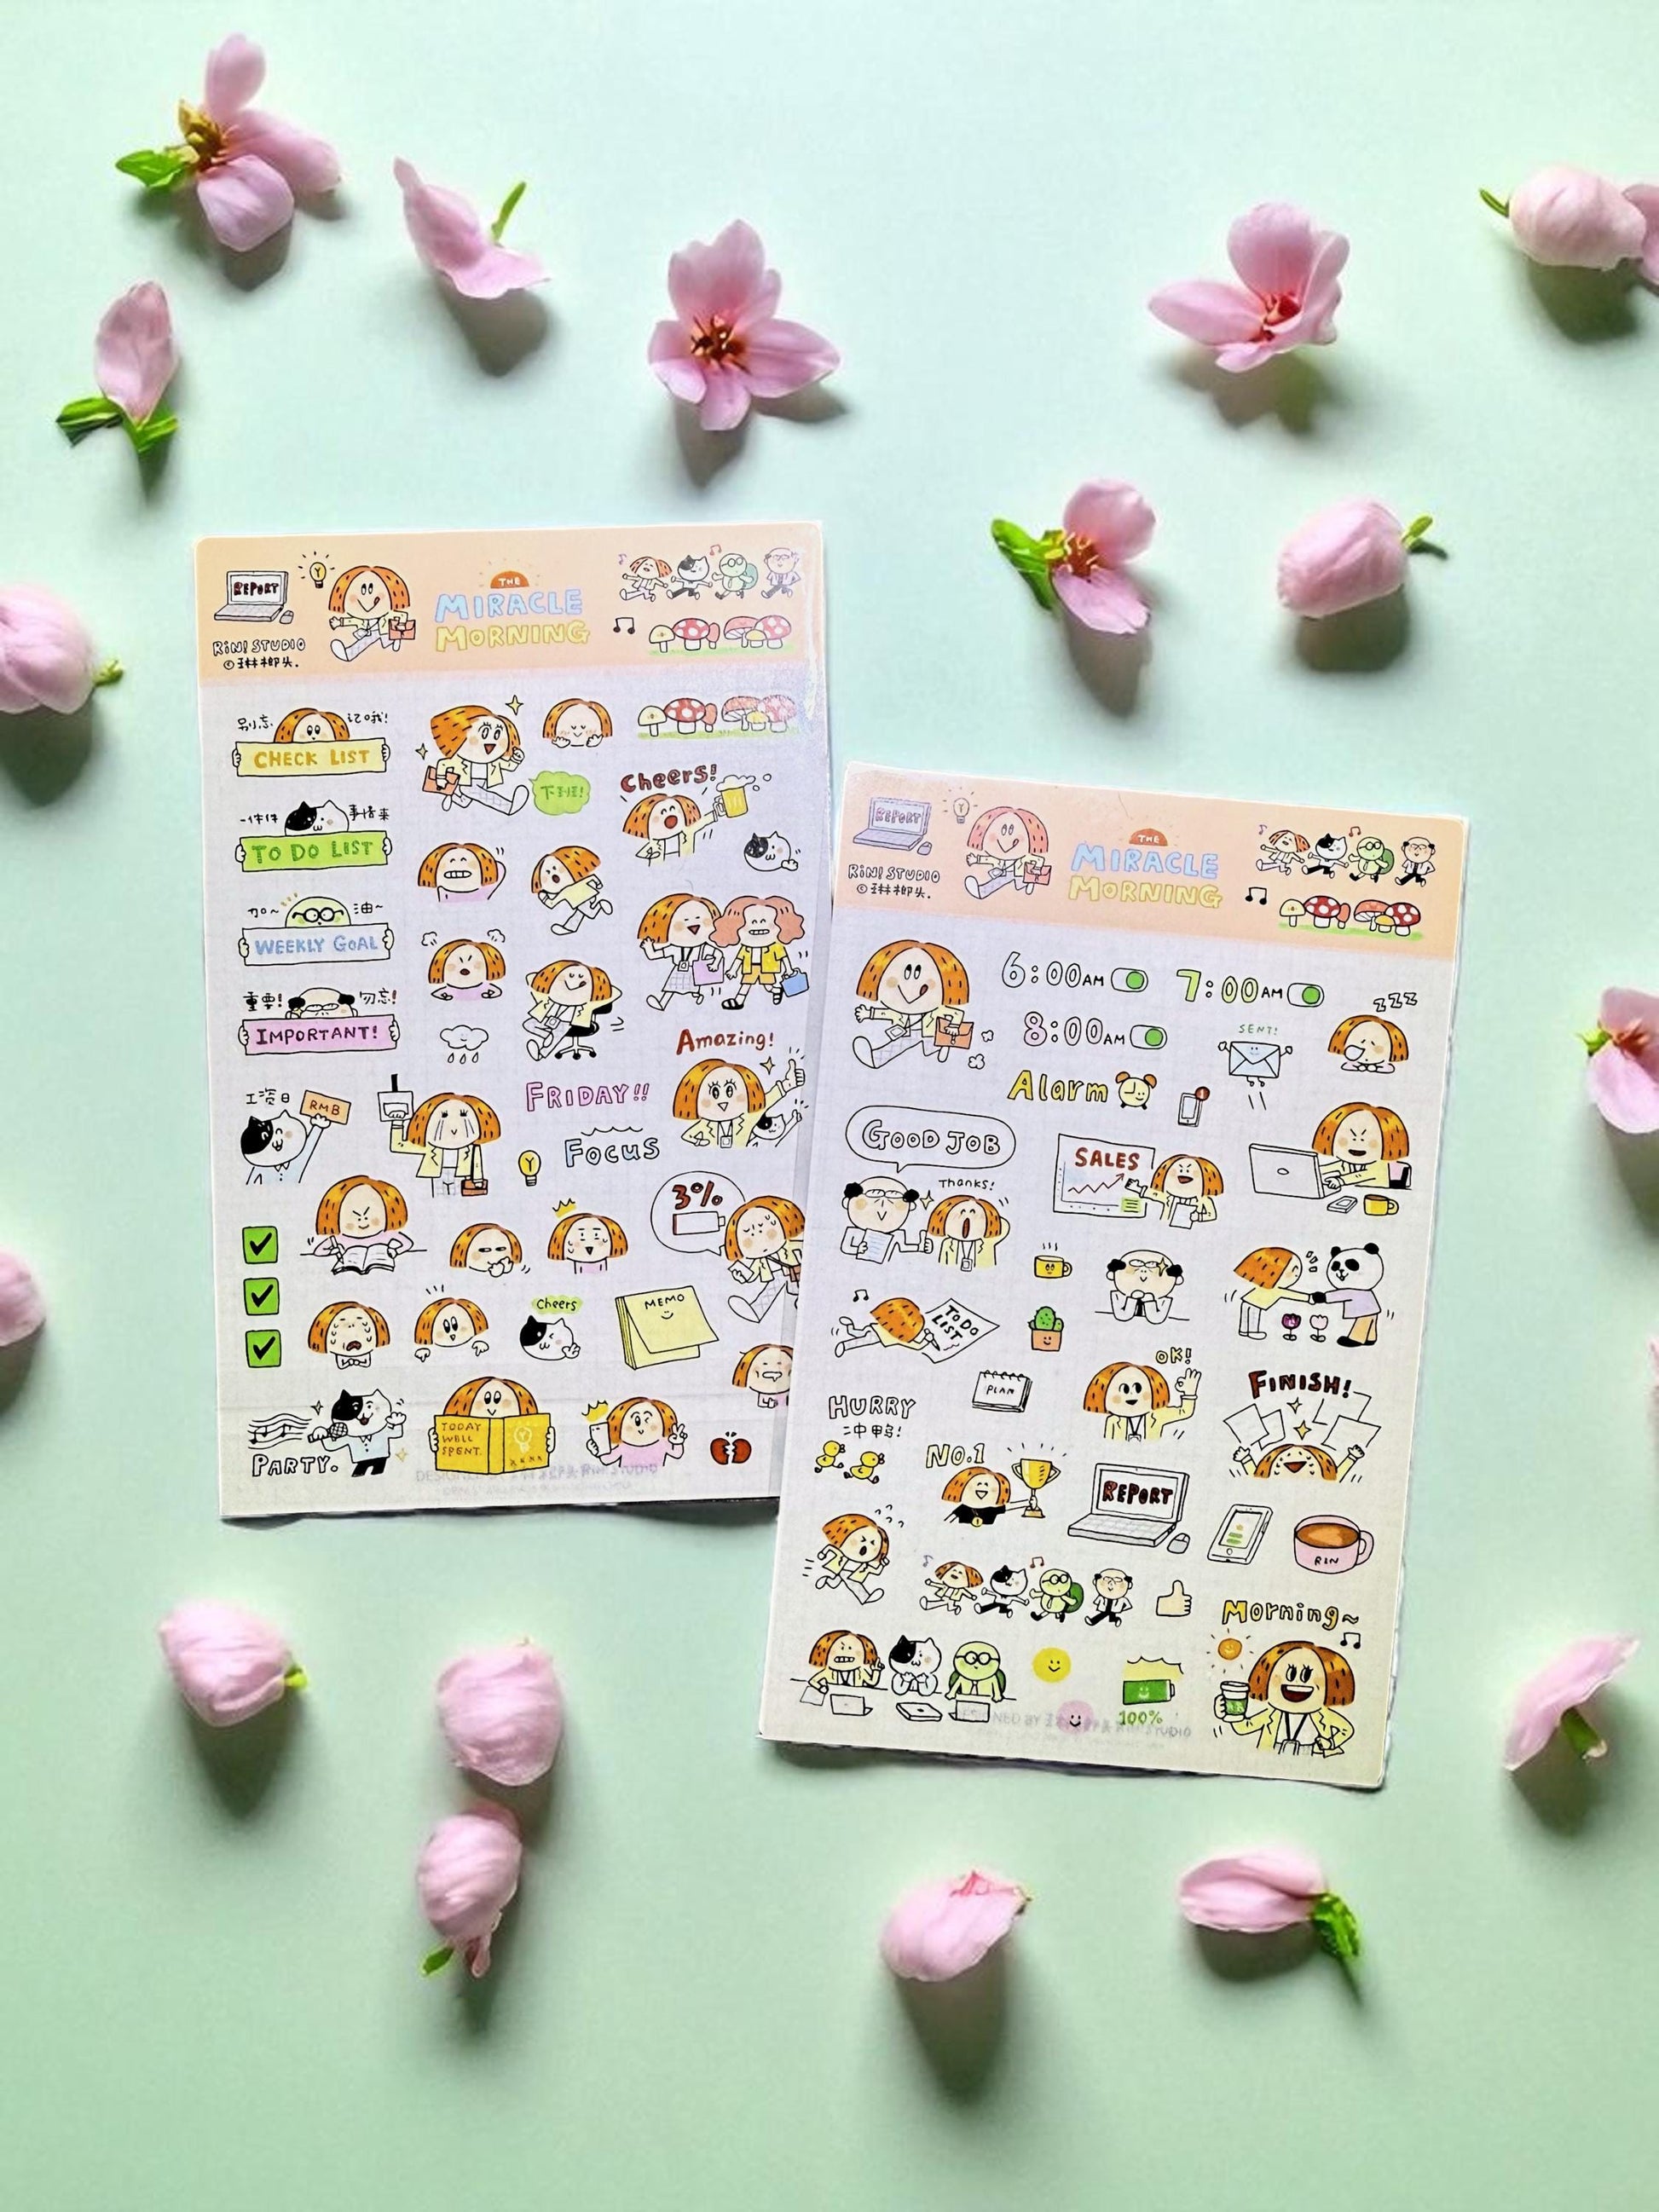 REPORT
RiNi STUDIO
©琳榔头.
THE
MIRACLE
MORNING
别忘记哦!
CHECK LIST
一件件事情来
TO DO LIST
加~油~
WEEKLY GOAL
重要!勿忘!
IMPORTANT!
下班!
Cheers!
Amazing!
工资日
RMB
FRIDAY!!
Focus
3%
Cheers
MEMO
TODAY
WELL
SPENT.
PARTY.
REPORT
RiNi STUDIO
©琳榔头.
THE
MIRACLE
MORNING
6:00AM
7:00AM
8:00AM
zzz
SENT!
Alarm
GOOD JOB
Thanks!
SALES
TO DO
LIST
PLAN
OK!
FINISH!
HURRY
冲鸭!
NO.1
REPORT
RIN
Morning~
100%